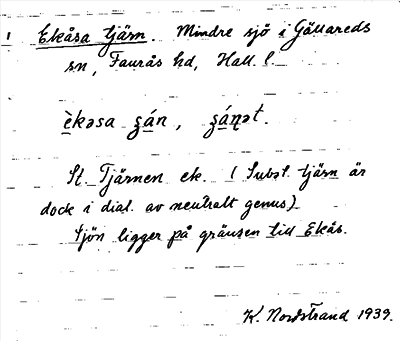 Ekåsa tjärn. Mindre sjö i Gällareds
sn, Faurås hd, Hall. l.
èkəsa
Sl. Tjärnen ek. (Subst. tjärn är
dock i dial. av neutralt genus)
Sjön ligger på gränsen till Ekås.
K. Nordstrand 1939.